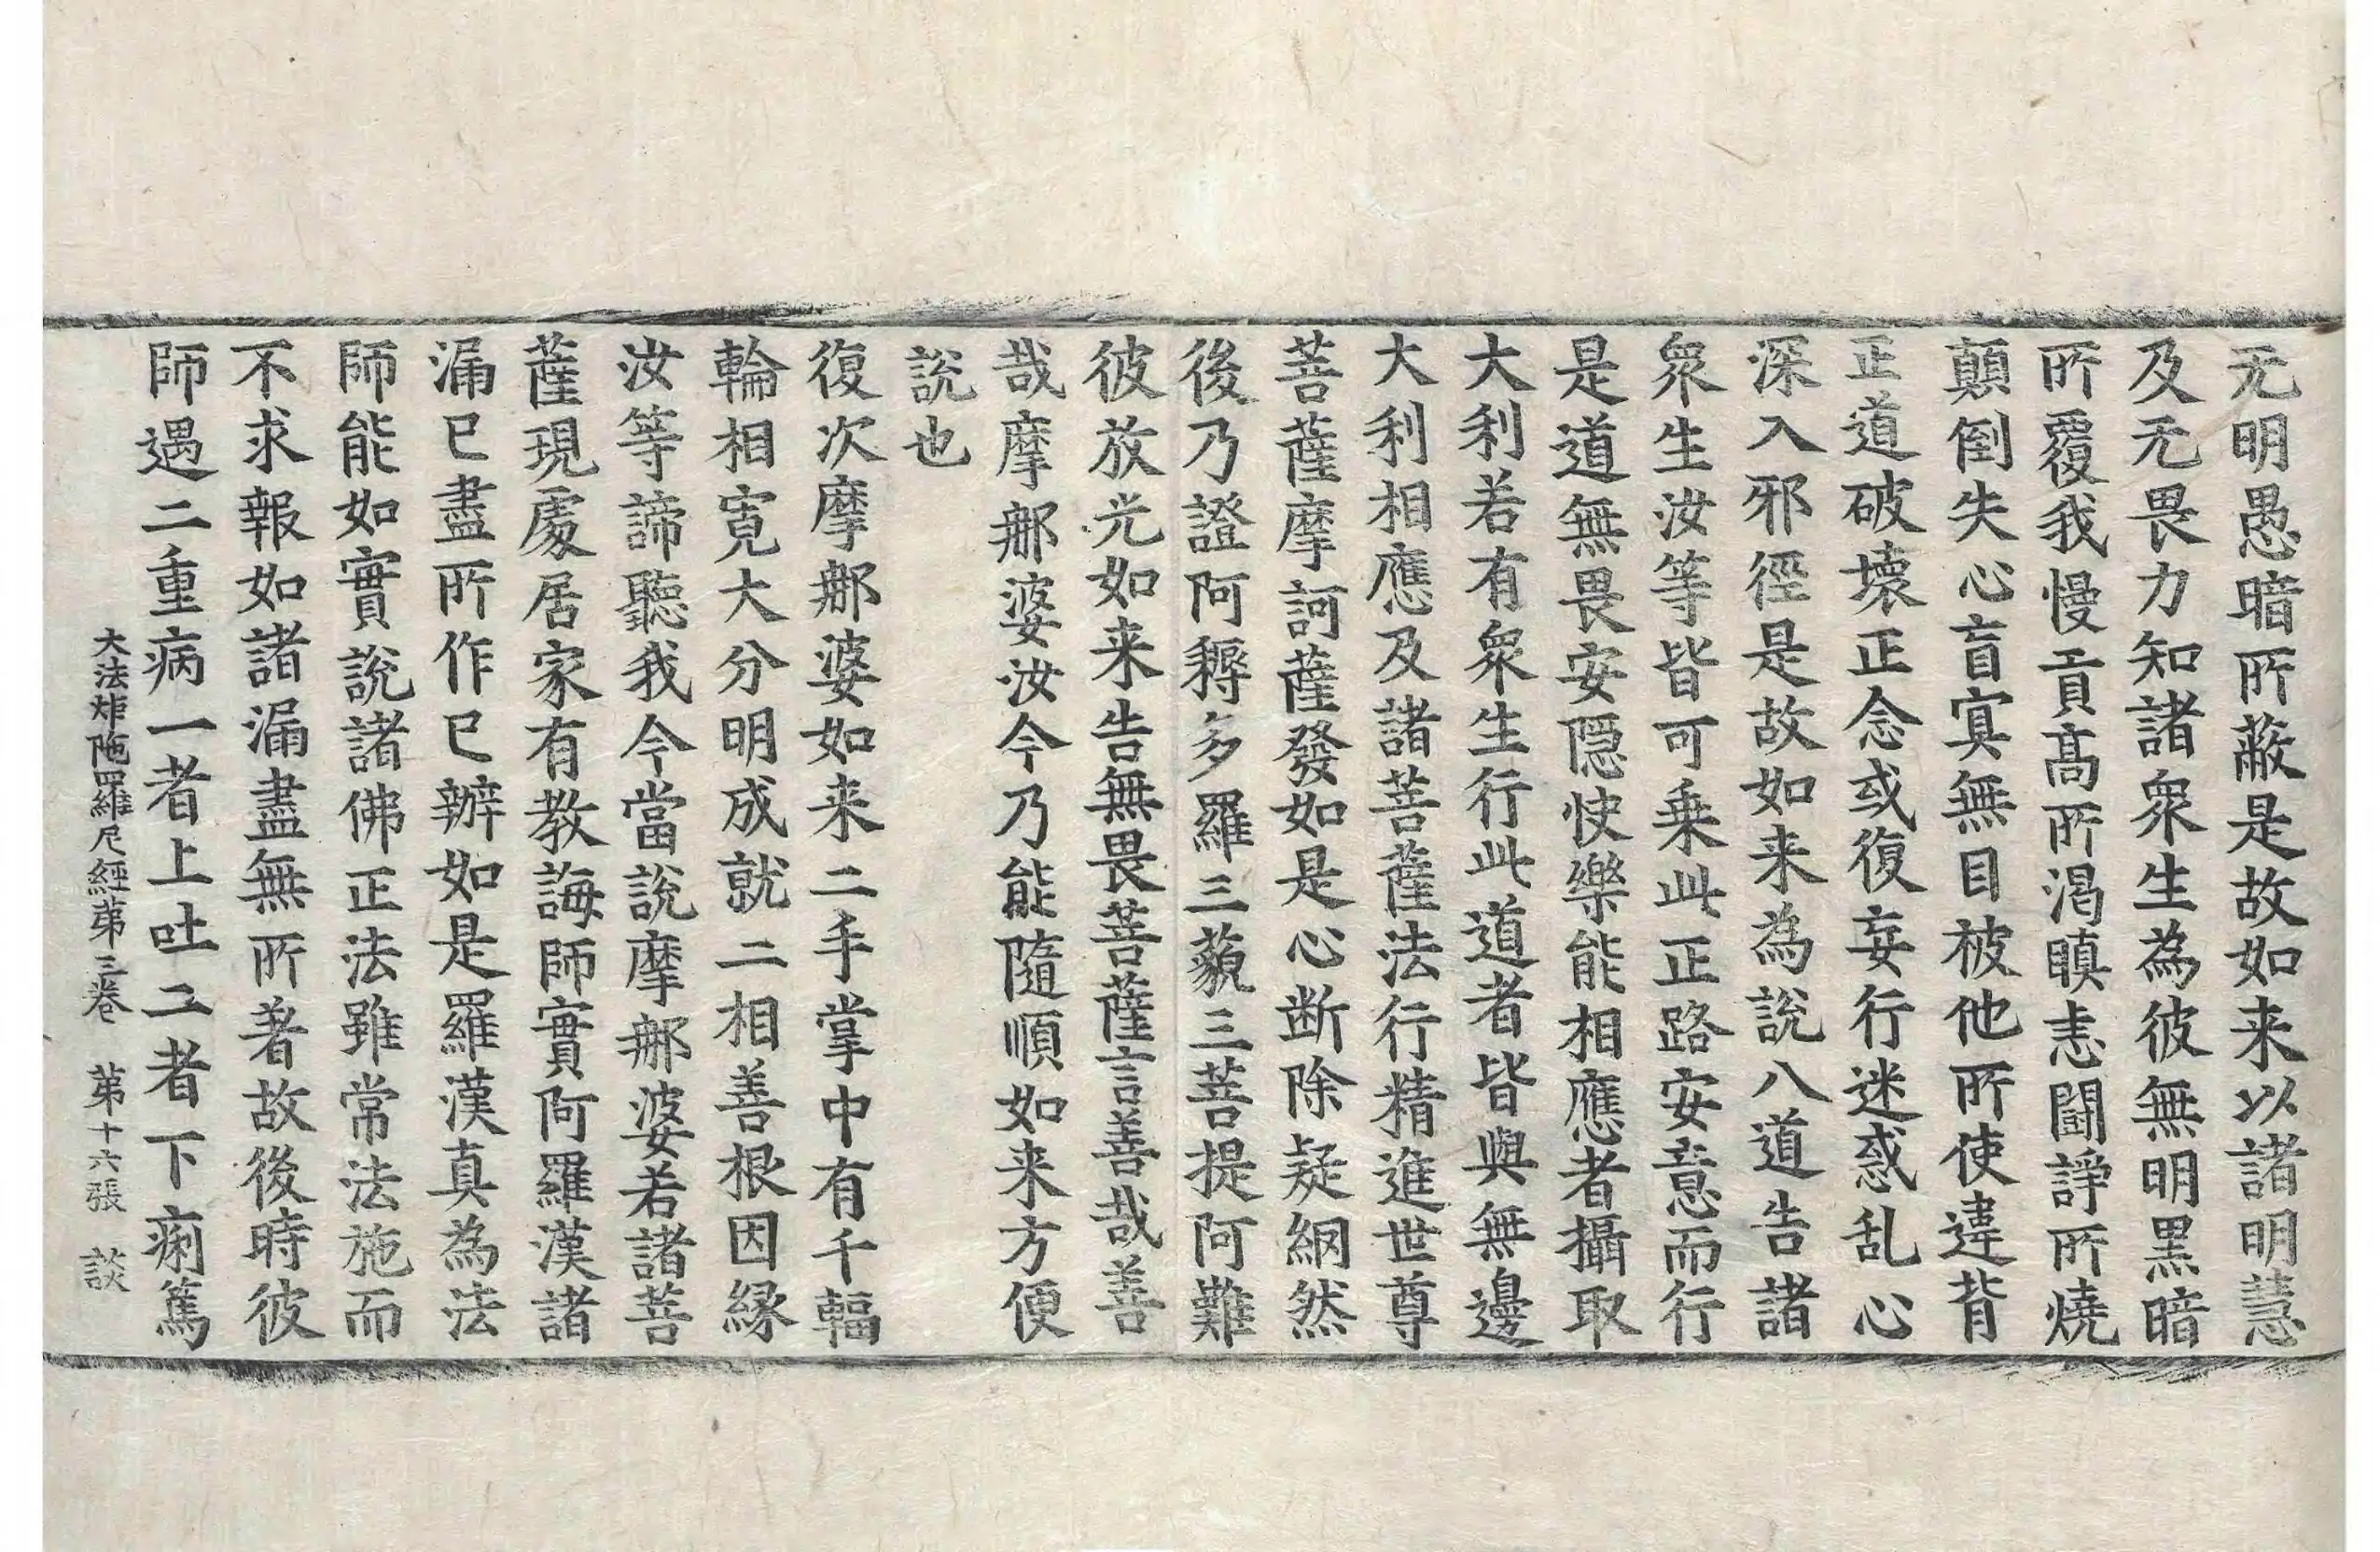 无明愚暗所蔽是故如来以諸明慧
及无畏力知諸衆生為彼無明黒暗
所覆我慢貢髙所渇瞋恚闘諍所燒
顛倒失心盲㝠無目被他所使違背
正道破壊正念或復妄行迷惑乱心
深入邪徑是故如来為說八道告諸
衆生汝等皆可乗此正路安意而行
是道無畏安隠快樂能相應者攝取
大利若有衆生行此道者皆與無邊
大利相應及諸菩薩法行精進世尊
菩薩摩訶薩發如是心断除疑網然
後乃證阿耨多羅三藐三菩提阿難
彼放光如来告無畏菩薩言善哉善
哉摩㝹婆汝今乃能隨順如来方便
說也
復次摩㝹婆如来二手掌中有千輻
輪相寛大分明成就二相善根因縁
汝等諦聽我今當說摩㝹婆若諸菩
薩現處居家有教誨師實阿羅漢諸
漏已盡所作已辦如是羅漢真為法
師能如實說諸佛正法雖常法施而
不求報如諸漏盡無所著故後時彼
師遇二重病一者上吐二者下痢篤
大法炬陁羅尼經第三卷　第十六張　談